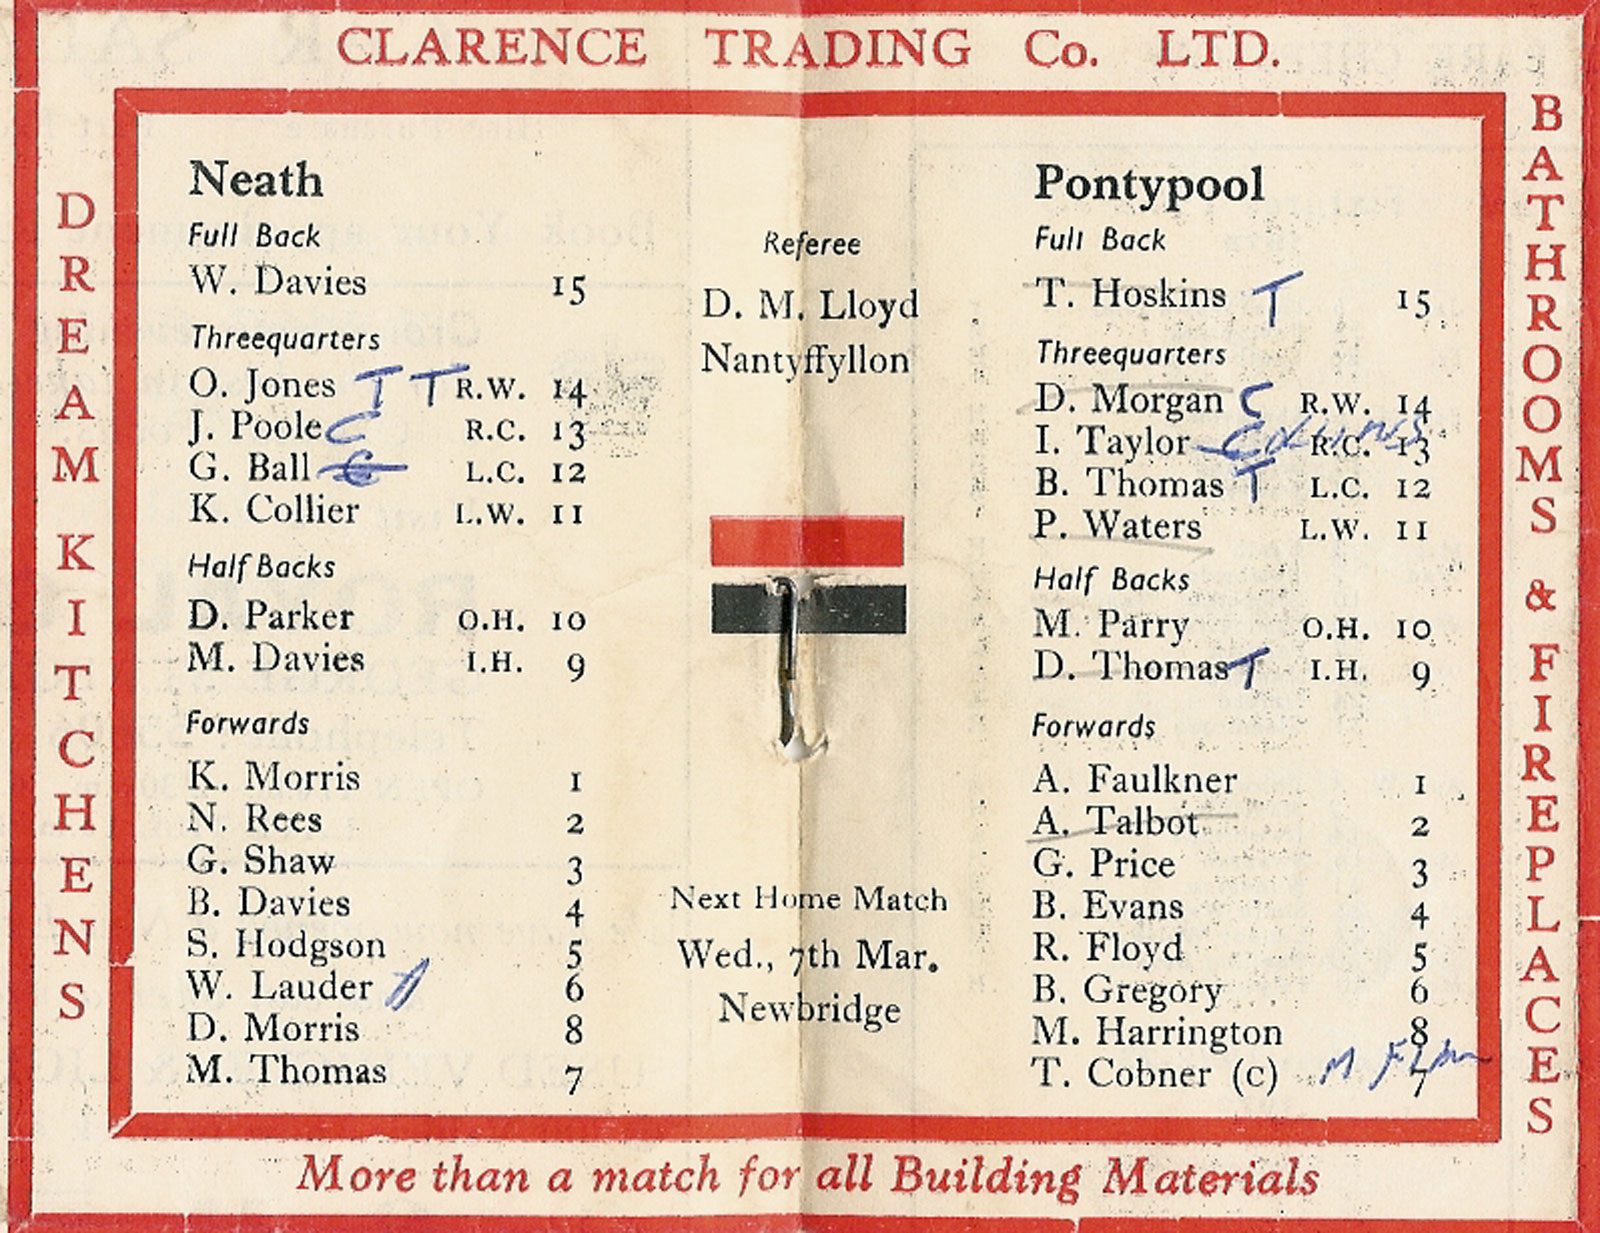 CLARENCE TRADING Co. LTD.
DREAM KITCHENS
Neath
Full Back
W. Davies 15
Threequarters
O. Jones T T R.W. 14
J. Poole C R.C. 13
G. Ball L.C. 12
K. Collier L.W. 11
Half Backs
D. Parker O.H. 10
M. Davies I.H. 9
Forwards
K. Morris 1
N. Rees 2
G. Shaw 3
B. Davies 4
S. Hodgson 5
W. Lauder 6
D. Morris 8
M. Thomas 7
Referee
D. M. Lloyd
Nantyffyllon
Next Home Match
Wed., 7th Mar.
Newbridge
Pontypool
Full Back
T. Hoskins T 15
Threequarters
D. Morgan C R.W. 14
I. Taylor R.C. 13
B. Thomas T L.C. 12
P. Waters L.W. 11
Half Backs
M. Parry O.H. 10
D. Thomas T I.H. 9
Forwards
A. Faulkner 1
A. Talbot 2
G. Price 3
B. Evans 4
R. Floyd 5
B. Gregory 6
M. Harrington 8
T. Cobner (c) 7
BATHROOMS & FIREPLACES
More than a match for all Building Materials